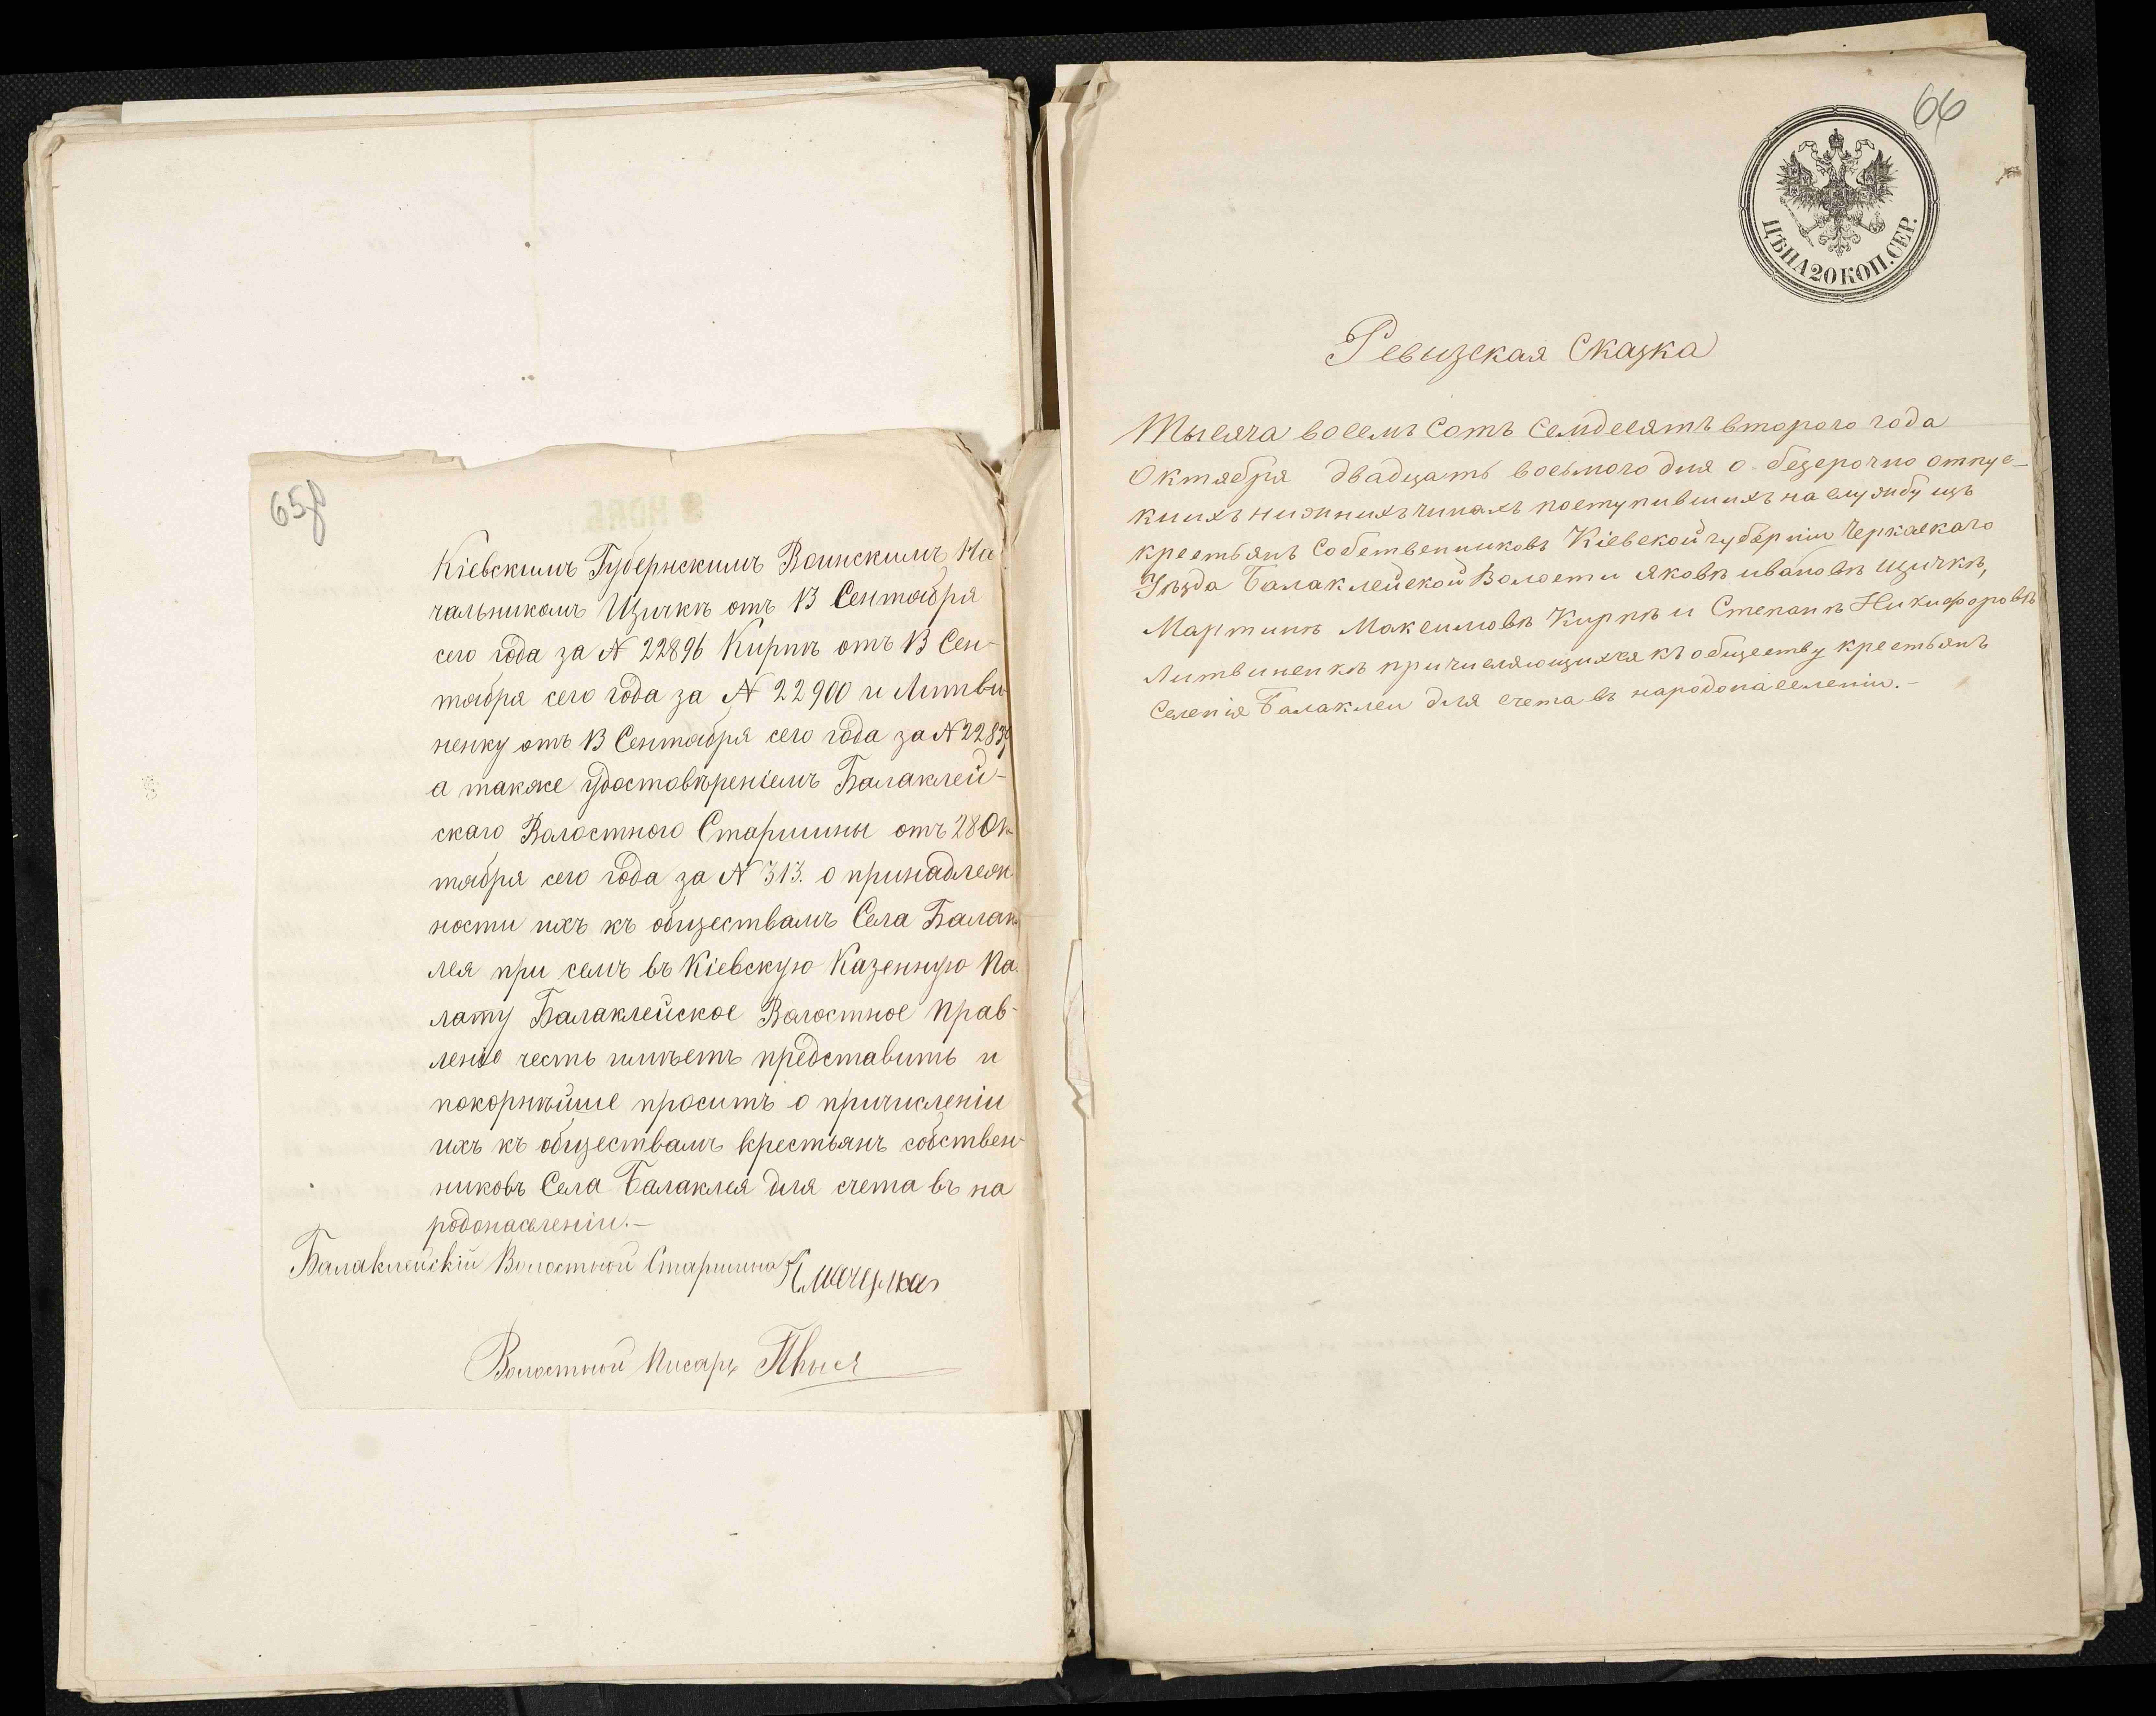 65
Кіевскимъ Губернскимъ Воинскимъ На
чальникомъ Изичкѣ отъ 13 Сентября
сего года за № 22896 Кирпѣ отъ 13 Сен-
тября сего года за № 22900 и Литви
ненку отъ 13 Сентября сего года за №
а также удостовѣреніемъ Балаклей-
скаго Волостного Старшины отъ 28 Ок
тября сего года за № 313. о принадлеж
ности ихъ къ обществамъ Села Балак
лея при семъ въ Кіевскую Казенную Па
лату Балаклейское Волостное Прав-
леніе честь имѣетъ представить и
покорнѣйше проситъ о причисленіи
ихъ къ обществамъ крестьянъ собствен-
никовъ Села Балаклея для счета въ на
родонаселеніи.—
Балаклейскій Волостной Старшина
Волостной Писарь
66
ЦѢНА 20 КОП. СЕР.
Ревизская Сказка
Тысяча восемъ сотъ семдесятъ второго года
Октября двадцать восьмого дня о безсрочно отпус-
кныхъ нижнихъ чинахъ поступившихъ на службу изъ
крестьянъ собственниковъ Кіевской губерніи Черкаскаго
Уѣзда Балаклейской Волости Яковѣ Ивановѣ Изичкѣ,
Мартинѣ Максимовѣ Кирпѣ и Степанѣ Никифоровѣ
Литвиненкѣ причисляющихся къ обществу крестьянъ
Селенія Балаклеи для счета въ народонаселеніи.—